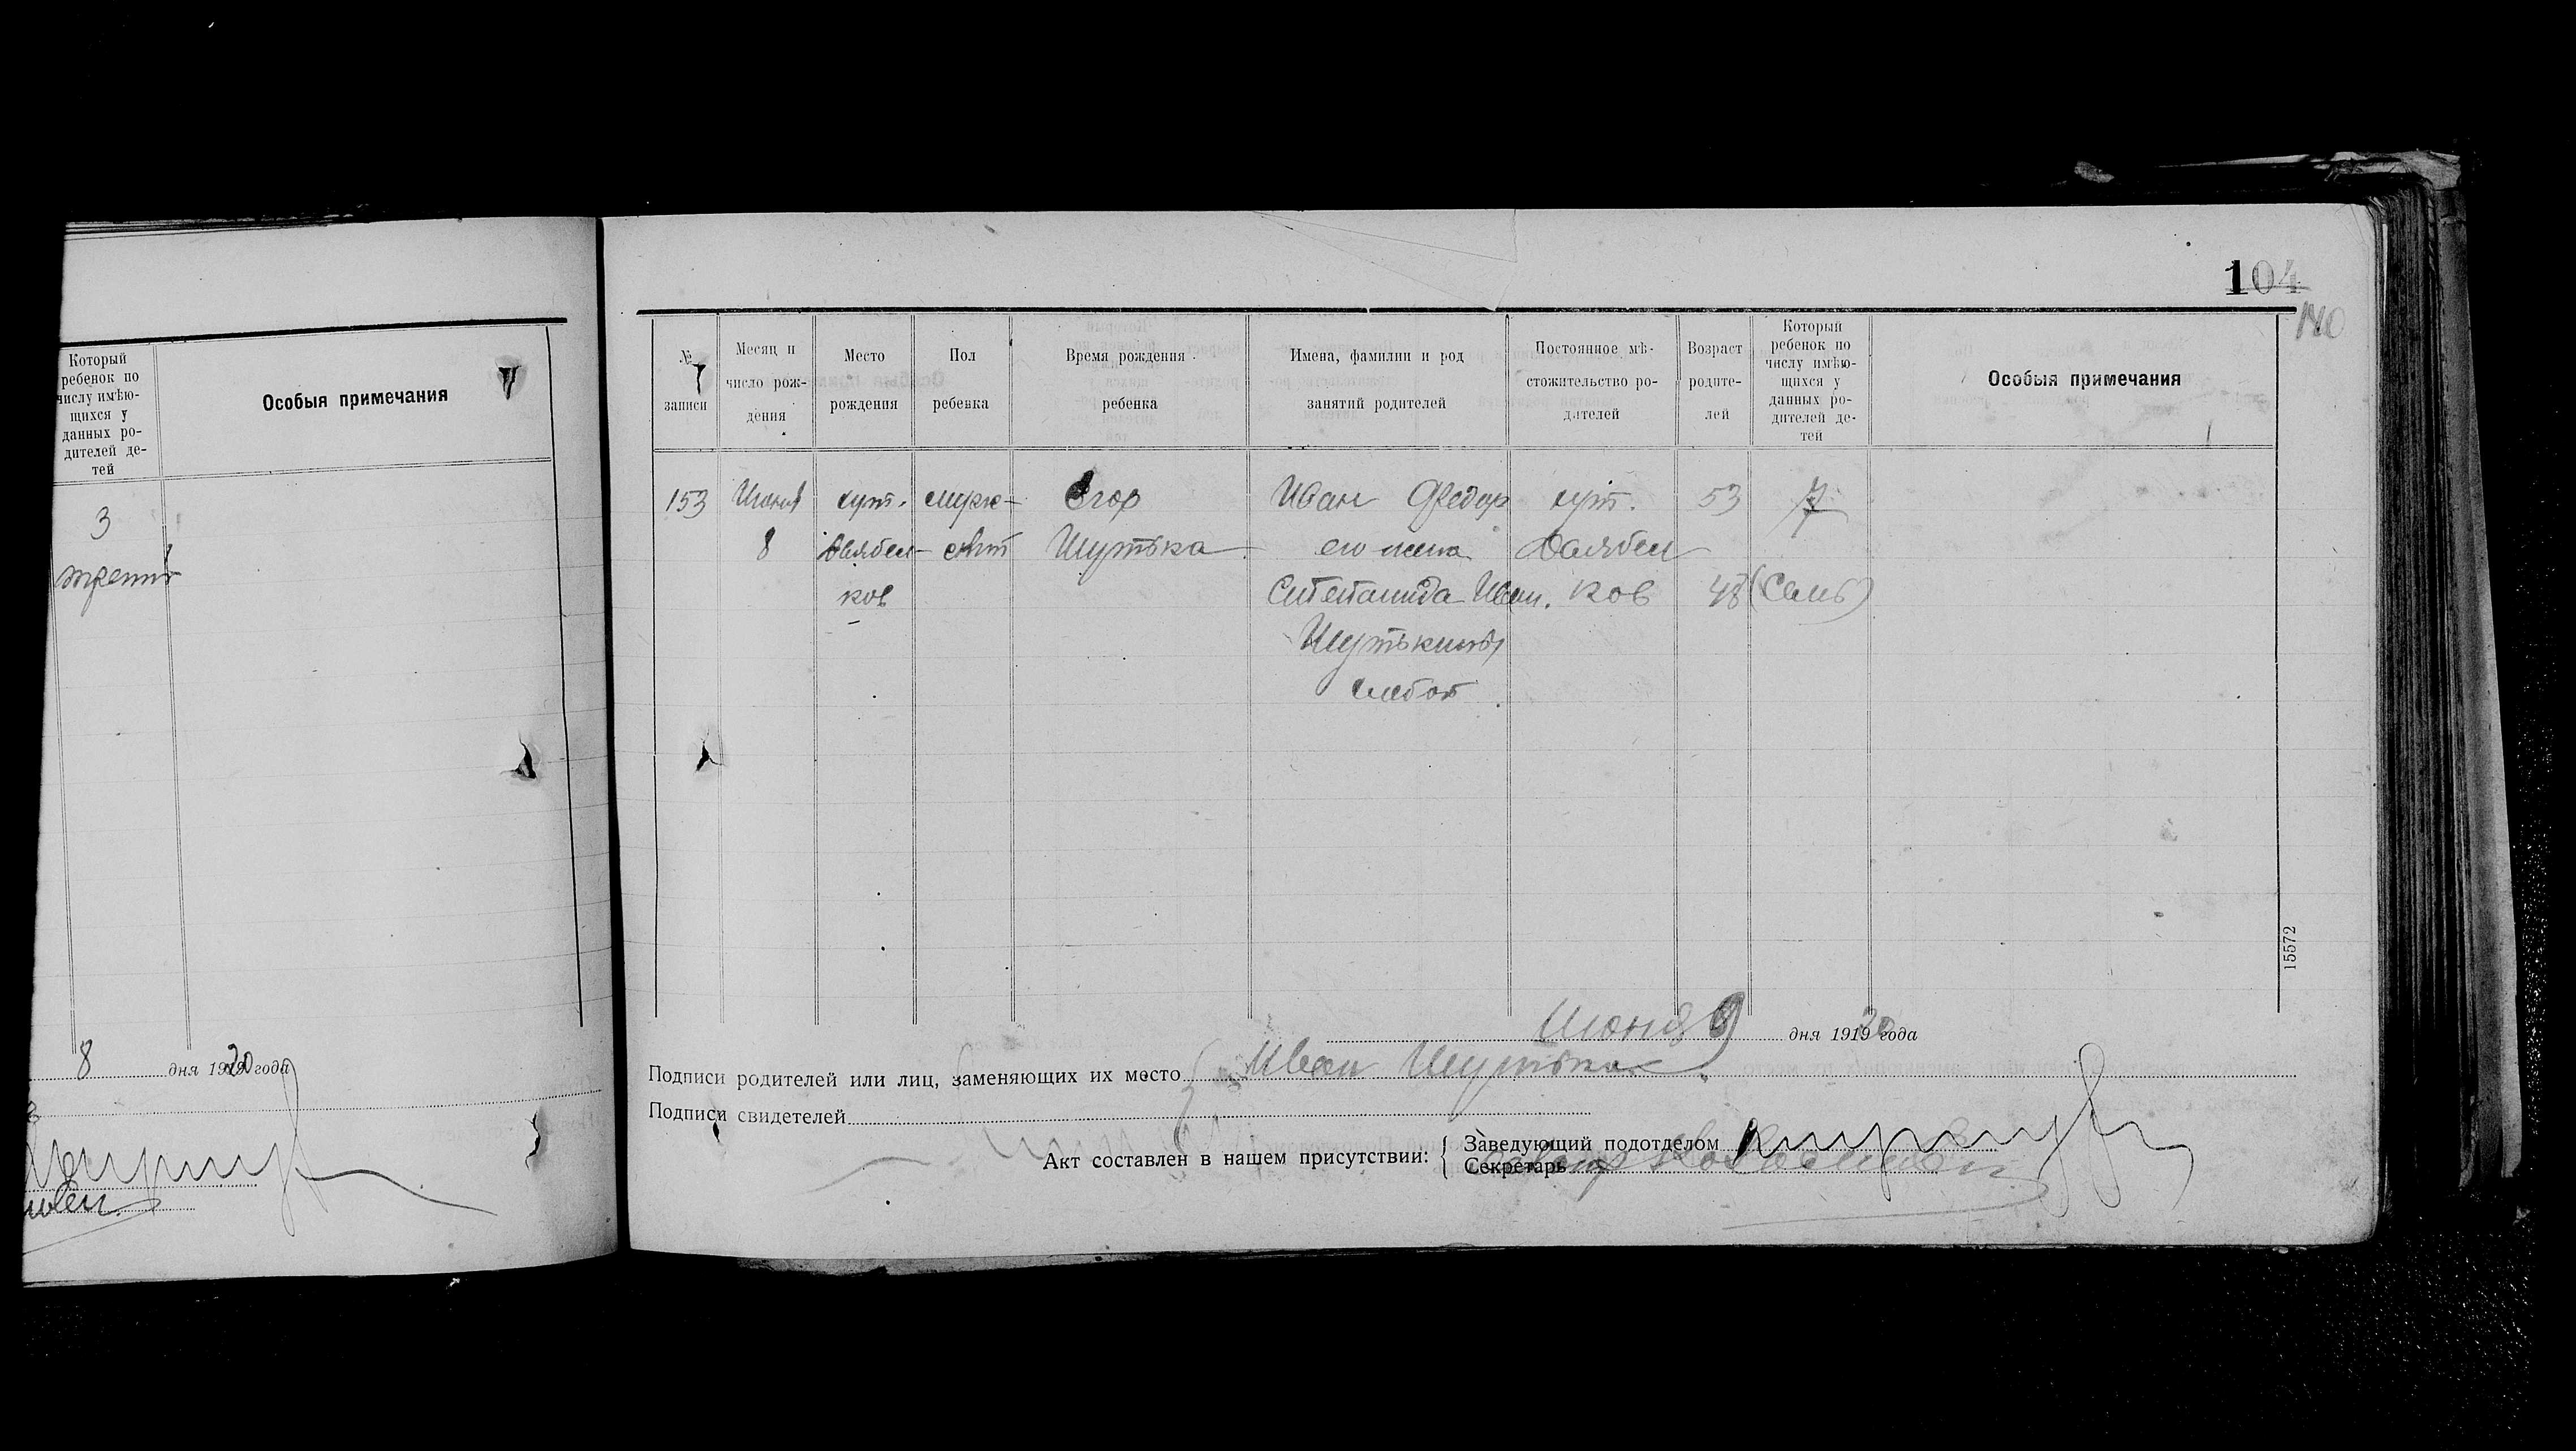 Который
ребенок по
числу имѣю-
щихся у
данных ро-
дителей де-
тей
Особыя примечания
3
8 дня 1920 года
104
140
№ записи
Месяц и число рож-дения
Место рождения
Пол ребенка
Время рождения ребенка
Имена, фамилии и род занятий родителей
Постоянное мѣ-стожительство ро-дителей
Возраст родите-лей
Который ребенок по числу имѣю-щихся у данных ро-дителей де-тей
Особыя примечания
153 Июня хут. мужс- Егор Иван Федор хут. 53 7
8 Шутька его жена
ков Степанида Иван. ков 48 (Семь)
Шутькины
хлебоп
15572
Июня 9 дня 1920 года
Подписи родителей или лиц, заменяющих их место Иван Шутька
Подписи свидетелей
Акт составлен в нашем присутствии:
Заведующий подотделом
Секретарь